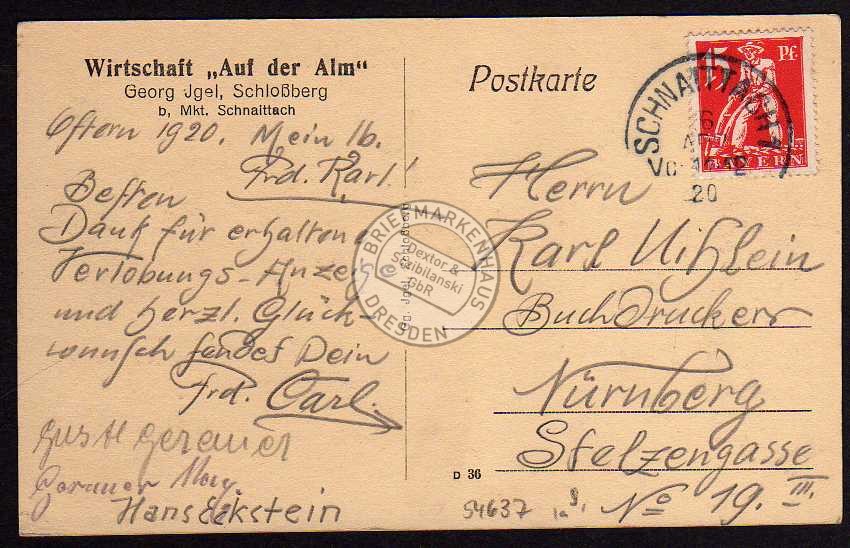 Wirtschaft „Auf der Alm“
Georg Jgel, Schloßberg
b, Mkt. Schnaittach
Postkarte
15 Pf.
BAYERN
SCHNAITTACH 1
6
20
Ostern 1920. Mein lb.
Frd. Karl!
Besten
Dank für erhaltene
Verlobungs-Anzeige
und herzl. Glück-
wunsch sendet Dein
Frd. Carl.
Gustl Gerauer
Hans Eckstein
Herrn
Karl
Buchdrucker
Nürnberg
Stelzengasse
No 19. III.
D 36
54637
BRIEFMARKENHAUS
Dextor &
Scibilanski
GbR
DRESDEN